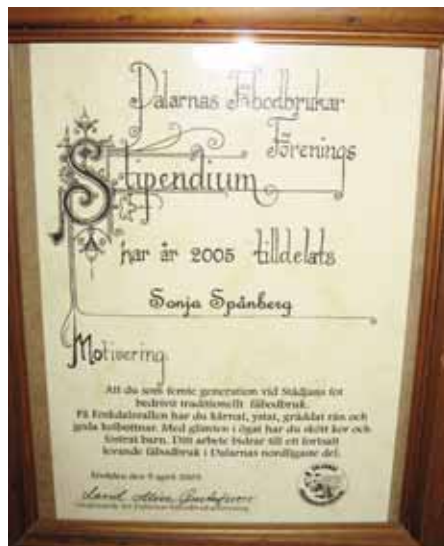 Dalarnas Fäbodbrukar
Förenings
Stipendium
har år 2005 tilldelats
Sonja Spånberg
Motivering
Att du som femte generation vid Städjans fot
bedrivit traditionellt fäbodbruk.
På har du kärnat, ystat, gräddat rån och
goda kolbottnar. Med glimten i ögat har du skött kor och
fostrat barn. Ditt arbete bidrar till ett fortsatt
levande fäbodbruk i Dalarnas nordligaste del.
den 9 april 2005